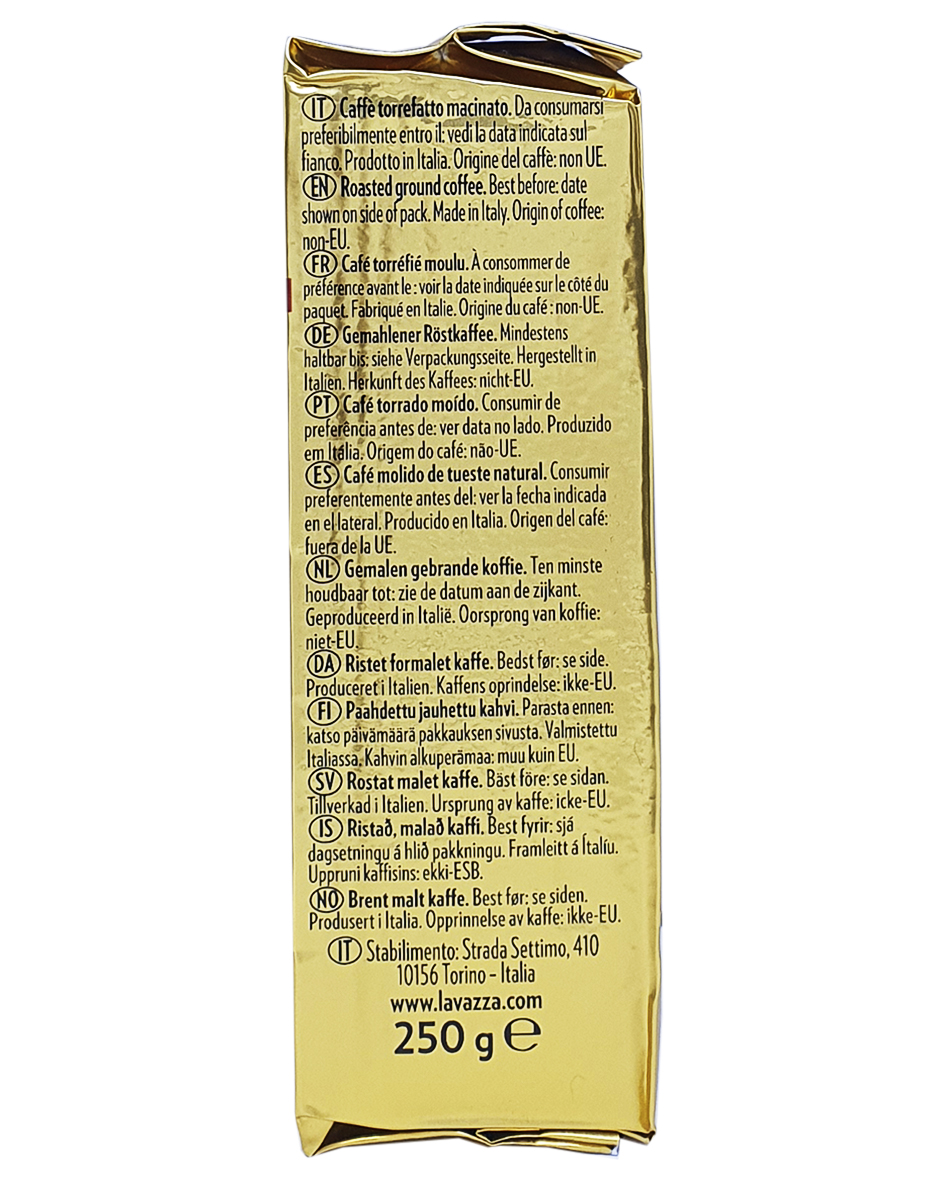 IT Caffè torrefatto macinato. Da consumarsi
preferibilmente entro il: vedi la data indicata sul
fianco. Prodotto in Italia. Origine del caffè: non UE.
EN Roasted ground coffee. Best before: date
shown on side of pack. Made in Italy. Origin of coffee:
non-EU.
FR Café torréfié moulu. À consommer de
préférence avant le : voir la date indiquée sur le côté du
paquet. Fabriqué en Italie. Origine du café : non-UE.
DE Gemahlener Röstkaffee. Mindestens
haltbar bis: siehe Verpackungsseite. Hergestellt in
Italien. Herkunft des Kaffees: nicht-EU.
PT Café torrado moído. Consumir de
preferência antes de: ver data no lado. Produzido
em Itália. Origem do café: não-UE.
ES Café molido de tueste natural. Consumir
preferentemente antes del: ver la fecha indicada
en el lateral. Producido en Italia. Origen del café:
fuera de la UE.
NL Gemalen gebrande koffie. Ten minste
houdbaar tot: zie de datum aan de zijkant.
Geproduceerd in Italië. Oorsprong van koffie:
niet-EU.
DA Ristet formalet kaffe. Bedst før: se side.
Produceret i Italien. Kaffens oprindelse: ikke-EU.
FI Paahdettu jauhettu kahvi. Parasta ennen:
katso päivämäärä pakkauksen sivusta. Valmistettu
Italiassa. Kahvin alkuperämaa: muu kuin EU.
SV Rostat malet kaffe. Bäst före: se sidan.
Tillverkad i Italien. Ursprung av kaffe: icke-EU.
IS Ristað, malað kaffi. Best fyrir: sjá
dagsetningu á hlið pakkningu. Framleitt á Ítalíu.
Uppruni kaffisins: ekki-ESB.
NO Brent malt kaffe. Best før: se siden.
Produsert i Italia. Opprinnelse av kaffe: ikke-EU.
IT Stabilimento: Strada Settimo, 410
10156 Torino - Italia
www.lavazza.com
250 g ℮